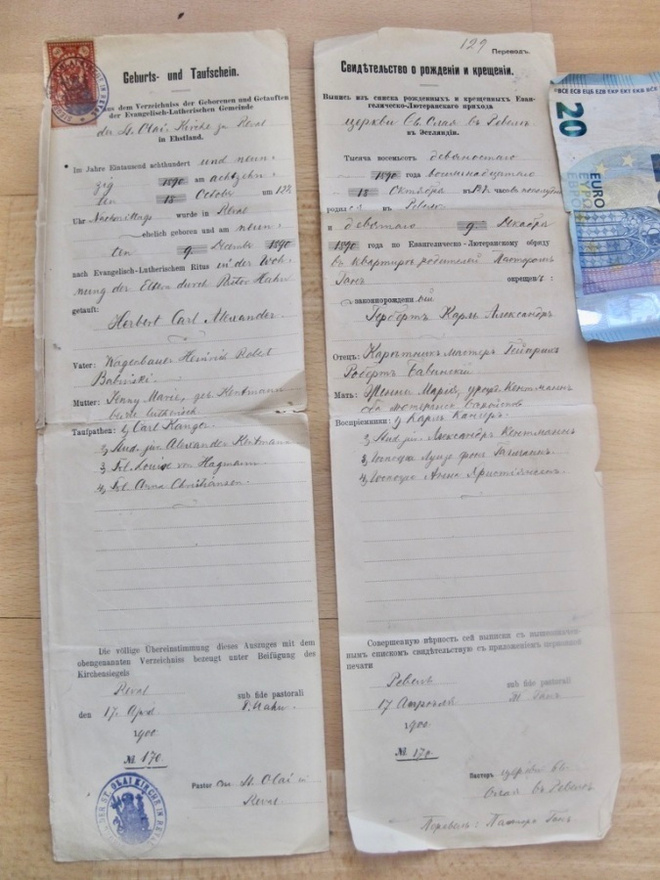 Geburts- und Taufschein.
Aus dem Verzeichniss der Geborenen und Getauften
der Evangelisch-Lutherischen Gemeinde
der St. Olai Kirche zu Reval
in Ehstland.
Im Jahre Eintausend achthundert und neun-
zig 1890 am achtzehn-
ten 18 October um 12½
Uhr Nachmittags wurde in Reval
ehelich geboren und am neun-
ten 9. December 1890
nach Evangelisch-Lutherischem Ritus in der Woh-
nung der Eltern durch Pastor Hahn
getauft:
Herbert Carl Alexander.
Vater: Wagenbauer Heinrich Robert
Babinski.
Mutter: Jenny Marie, geb. Kentmann
beide lutherisch
Taufpathen: 1, Carl Kanger.
2, Stud. jur. Alexander Kentmann
3, Frl. Louise von Hagmann.
4, Frl. Anna Christiansen.
Die völlige Übereinstimmung dieses Auszuges mit dem
obengenannten Verzeichniss bezeugt unter Beifügung des
Kirchensiegels
Reval sub fide pastorali
den 17. April T. Hahn.
1900
№ 170.
Pastor St. Olai in
Reval.
DER ST. OLAI KIRCHE IN REVAL
129
Переводъ.
Свидѣтельство о рожденіи и крещеніи.
Выпись изъ списка рожденныхъ и крещенныхъ Еван-
гелическо-Лютеранскаго прихода
церкви Св. Олая въ Ревелѣ
въ Эстляндіи.
Тысяча восемьсотъ девяностаго
1890 года восемнадцатаго
18 Октября въ 12½ часовъ пополудни
родился въ Ревелѣ
и девятаго 9. Декабря
1890 года по Евангелическо-Лютеранскому обряду
въ квартирѣ родителей Пасторомъ
Ганъ окрещенъ:
законнорожденный
Гербертъ Карлъ Александръ
Отецъ: мастеръ Гейнрихъ
Робертъ Бабинскій.
Мать: Женни Марія, урожд. Кентманнъ
оба лютеранск.
Воспріемники: 1, Карлъ Кангеръ.
2, Студ. jur. Александръ Кентманнъ
3, Госпожа Луиза фонъ Гагманнъ.
4, Госпожа Анна Христіансенъ.
Совершенную вѣрность сей выписки съ вышеозначен-
нымъ спискомъ свидѣтельствую съ приложеніемъ церковной
печати
Ревель sub fide pastorali
17 Апрѣля Т. Ганъ.
1900.
№ 170
Пасторъ церкви Св.
Олая въ Ревелѣ
Перевелъ: Пасторъ Ганъ
BCE ECB ЕЦБ EZB EKP EKT EKB BCE
20
EURO
ΕΥΡΩ
ЕВРО